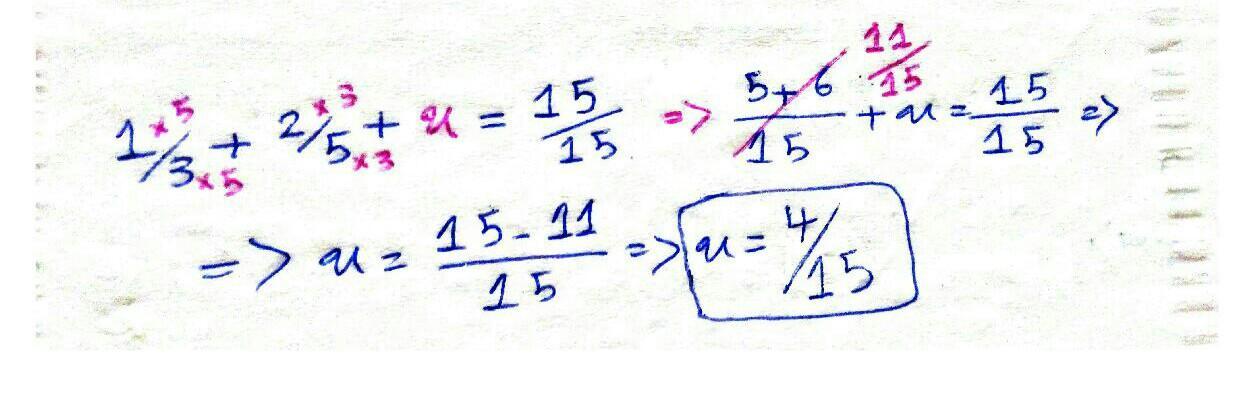 1×5/3×5 + 2×3/5×3 + x = 15/15 => 5+6/15 11/15 + x = 15/15 =>
=> x = 15-11/15 => x = 4/15